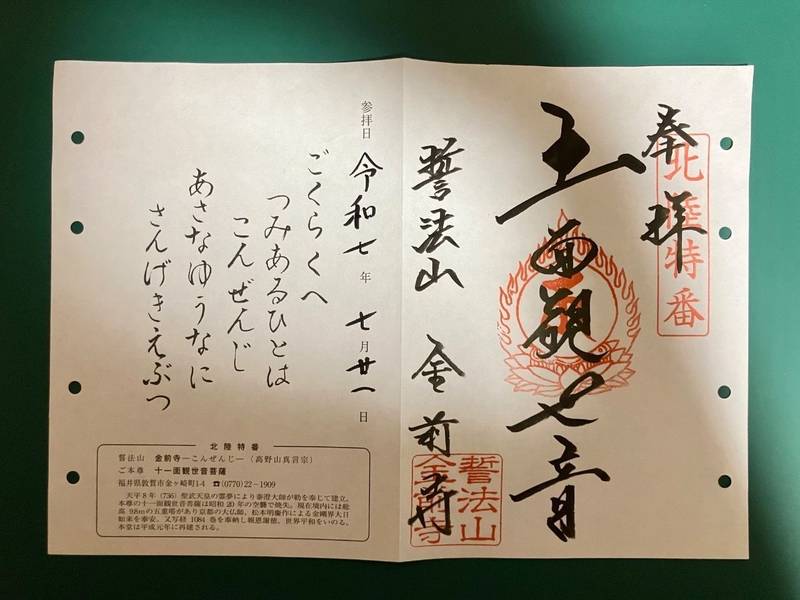 奉拝
北陸特番
十一面観世音
誓法山 金前寺
誓法山
金前寺
参拝日 令和七年 七月廿一日
ごくらくへ
つみあるひとは
こんぜんじ
あさなゆうなに
さんげきえぶつ
北陸特番
誓法山 金前寺―こんぜんじ―(高野山真言宗)
ご本尊 十一面観世音菩薩
福井県敦賀市金ヶ崎町1-4 ☎(0770)22-1909
天平8年(736)聖武天皇の霊夢により泰澄大師が勅を奉じて建立。
本尊の十一面観世音菩薩は昭和20年の空襲で焼失。現在境内には総
高9.8mの五重塔があり京都の大仏師、松本明慶作による金剛界大日
如来を奉安。又写経1084巻を奉納し報恩謝徳、世界平和をいのる。
本堂は平成元年に再建される。